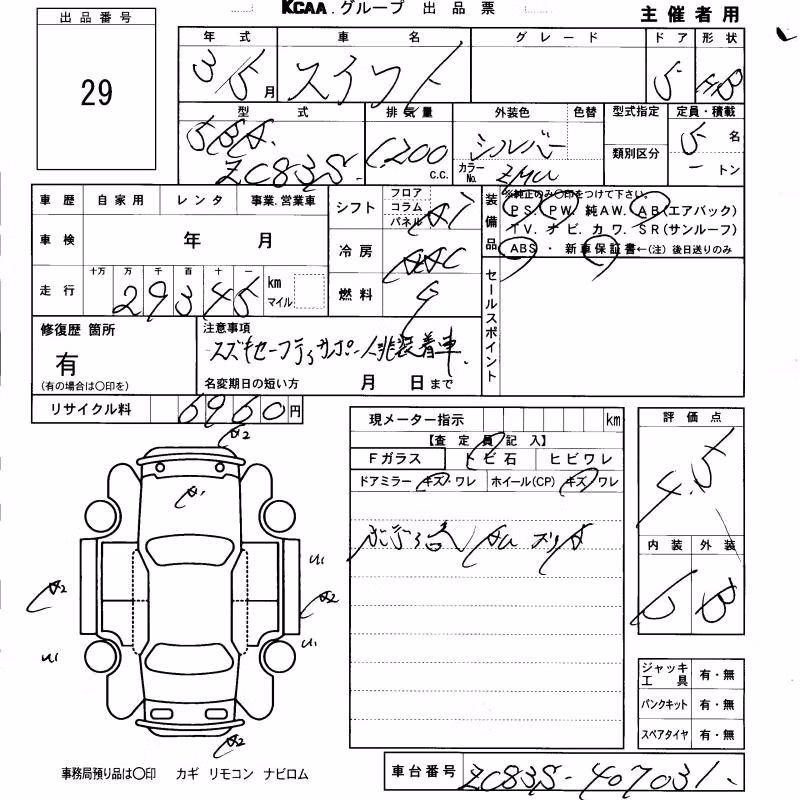 KCAA.グループ 出品票
主催者用
出品番号
29
年式 車名 グレード ドア 形状
3/5月 スイフト 5 HB
型式 排気量 外装色 色替 型式指定 定員・積載
5BA 1200 c.c. シルバー 5名
ZC83S カラーNo. ZMU 類別区分 トン
車歴 自家用 レンタ 事業.営業車
車検 年 月
走行 十万 万 千 百 十 一
29345 km マイル
シフト フロア コラム パネル AT
冷房 AAC
燃料
装備品
※純正のみ○印をつけて下さい。
PS. PW. 純AW. AB(エアバック)
TV. ナビ. カワ. SR(サンルーフ)
ABS ・ 新車保証書←(注)後日送りのみ
セールスポイント
修復歴 箇所
有
(有の場合は○印を)
注意事項
スズキセーフティサポート非装着車
名変期日の短い方 月 日まで
リサイクル料 6960円
現メーター指示 km
【査定員記入】
Fガラス トビ石 ヒビワレ
ドアミラー キズ・ワレ ホイール(CP) キズ・ワレ
評価点
4.5
内装 外装
C B
A2
A1
U1
A2 A2
U1 U1
A2
ジャッキ工具 有・無
パンクキット 有・無
スペアタイヤ 有・無
事務局預り品は○印 カギ リモコン ナビロム
車台番号 ZC83S-407031